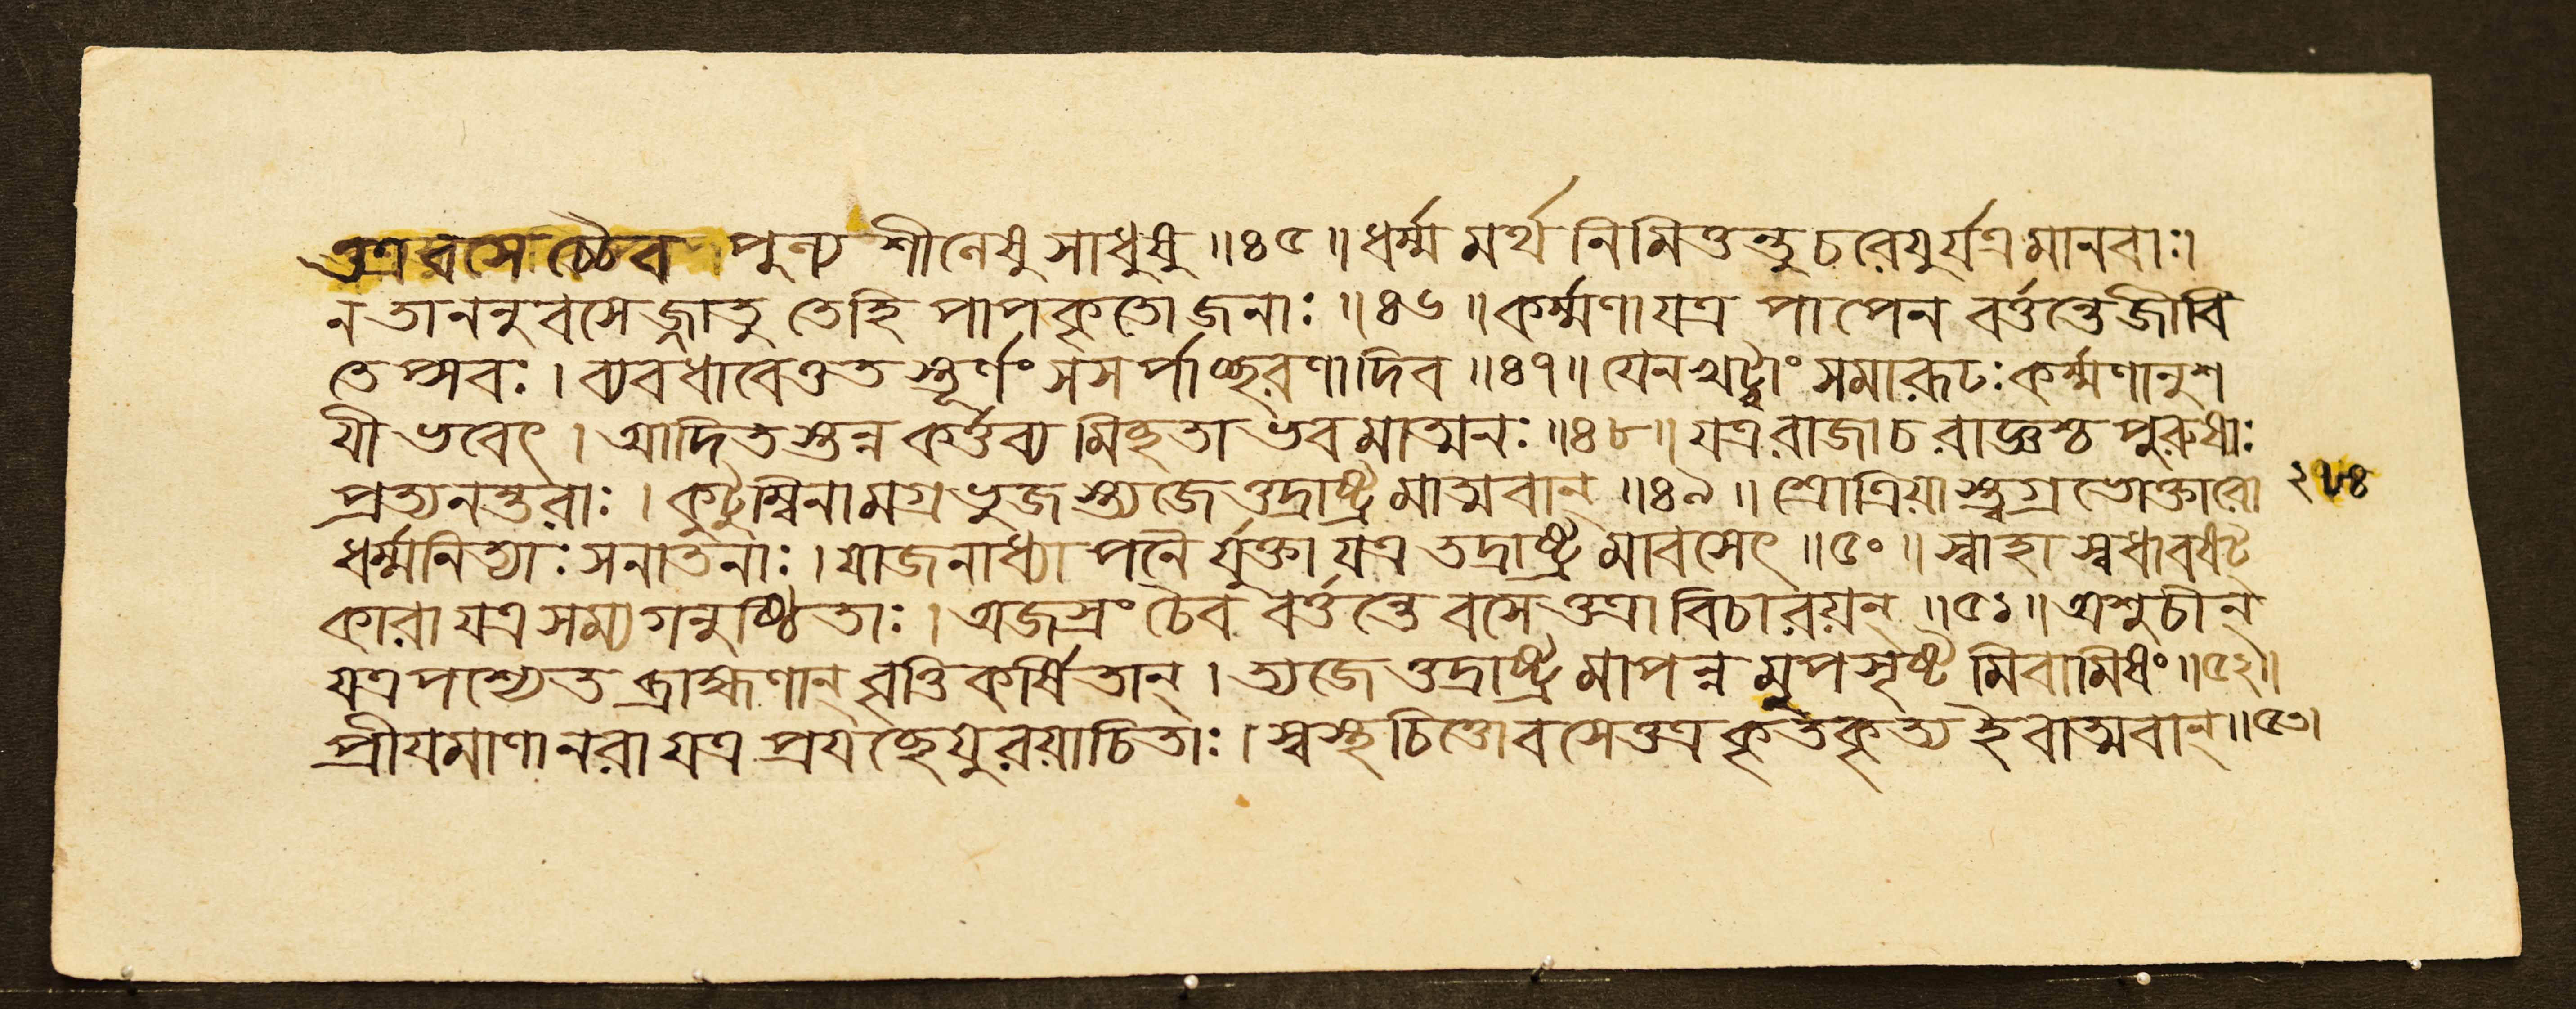 তত্র বসেচ্চৈব পুন্য শীলেষু সাধুষু ॥৪৫॥ ধর্ম্ম মর্থ নিমিত্তন্তু চরেযুর্যত্র মানবাঃ।
ন তাননুবসেজ্জাতু তেহি পাপকৃতো জনাঃ ॥৪৬॥ কর্ম্মণা যত্র পাপেন বর্ত্তন্তে জীবি
তেপ্সবঃ। ব্যবধাবেত্তত স্তূর্ণং সসর্পাচ্ছরণাদিব ॥৪৭॥ যেন খট্বাং সমারূঢঃ কর্ম্মণানুশ
যী ভবেৎ। আদিতস্তন্ন কর্ত্তব্য মিচ্ছতা ভবমাত্মনঃ ॥৪৮॥ যত্র রাজা চ রাজ্ঞশ্চ পুরুষাঃ
প্রত্যনন্তরাঃ। কুটুম্বিনামগ্রভুজ স্ত্যজেত্তদ্রাষ্ট্র মাত্মবান্ ॥৪৯॥ শ্রোত্রিয়াস্ত্বগ্রভোক্তারো ২৮৪
ধর্ম্মনিত্যাঃ সনাতনাঃ। যাজনাধ্যাপনৈ র্যুক্তা যত্র তদ্রাষ্ট্র মাবসেৎ ॥৫০॥ স্বাহা স্বধাবষট
কারা যত্র সম্যগনুষ্ঠিতাঃ। অজস্রং চৈব বর্ত্তন্তে বসেত্তত্রাবিচারয়ন্ ॥৫১॥ অশুচীন্
যত্র পশ্যেত ব্রাহ্মণান্ বৃত্তিকর্ষিতান্। ত্যজেত্তদ্রাষ্ট্র মাপন্ন মুপসৃষ্ট মিবামিষং ॥৫২॥
প্রীযমাণা নরা যত্র প্রযচ্ছেযুরয়াচিতাঃ। স্বস্থচিত্তো বসেত্তত্র কৃতকৃত্য ইবাত্মবান্ ॥৫৩।